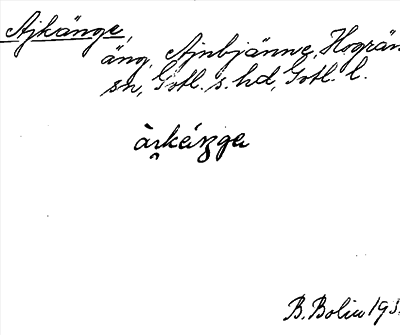 Ajkänge,
äng, Ajnbjänne, Hogrän
sn, Gotl. s. hd, Gotl. l.
àı̯kéŋga
B. Bolin 193